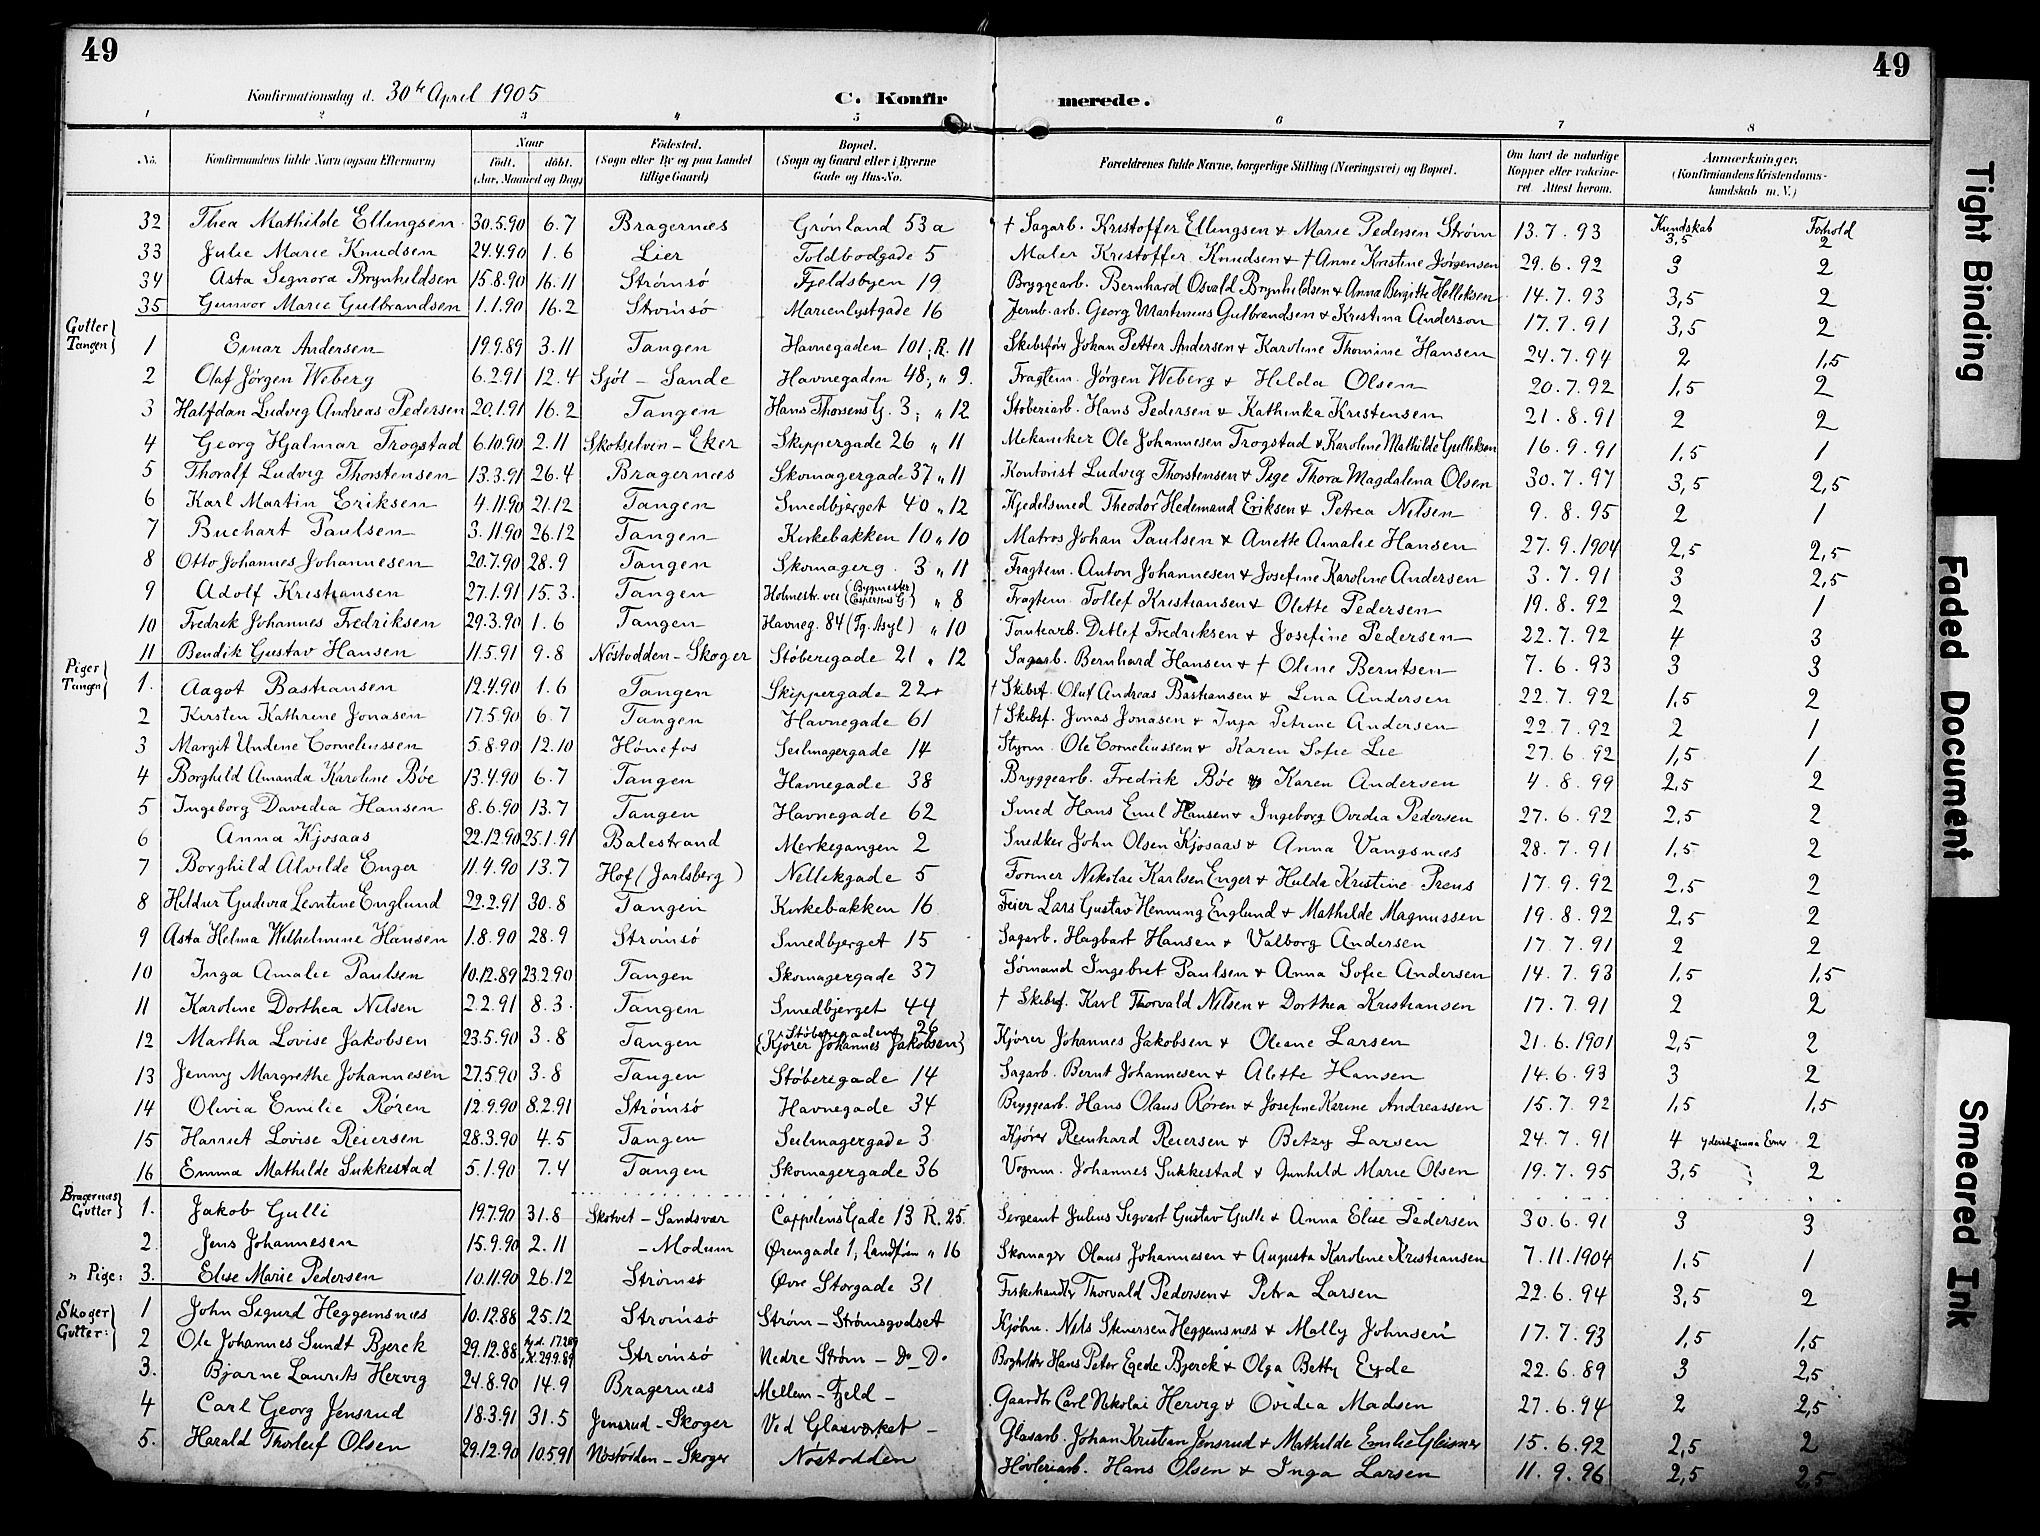 49
49
Konfirmationsdag d. 30te April 1905
C. Konfirmerede.
1 2 3 4 5 6 7 8
No. | Konfirmandens fulde Navn (ogsaa Efternavn) | Naar født. døbt. (Aar, Maaned og Dag) | Fødested. (Sogn eller By og paa Landet tillige Gaard) | Bopæl. (Sogn og Gaard eller i Byerne Gade og Hus-No. | Forældrenes fulde Navne, borgerlige Stilling (Næringsvei) og Bopæl. | Om havt de naturlige Kopper eller vaccineret. Attest herom. | Anmærkninger, (Konfirmandens Kristendomskundskab m. V.)
Kundskab Forhold
32 Thea Mathilde Ellingsen 30.5.90 6.7 Bragernæs Grønland 53a † Sagarb. Kristoffer Ellingsen & Marie Pedersen Strøm 13.7.93 3,5 2
33 Julie Marie Knudsen 24.4.90 1.6 Lier Toldbodgade 5 Maler Kristoffer Knudsen & † Anne Kristine Jørgensen 29.6.92 3 2
34 Asta Signora Brynhildsen 15.8.90 16.11 Strømsø Fjeldsbyen 19 Bryggearb. Bernhard Osvald Brynhildsen & Anna Bergitte Helliksen 14.7.93 3,5 2
35 Gunvor Marie Gulbrandsen 1.1.90 16.2 Strømsø Marienlystgade 16 Jernb.arb. Georg Martinius Gulbrandsen & Kristina Anderson 17.7.91 3,5 2
Gutter Tangen
1 Einar Andersen 19.9.89 3.11 Tangen Havnegaden 101; R. 11 Skibsfører Johan Petter Andersen & Karoline Thomine Hansen 24.7.94 2 1,5
2 Olaf Jørgen Weberg 6.2.91 12.4 Sjøl - Sande Havnegaden 48; " 9. Fragtem. Jørgen Weberg & Hilda Olsen 20.7.92 1,5 2
3 Halfdan Ludvig Andreas Pedersen 20.1.91 16.2 Tangen Hans Thorsens G. 3; " 12 Støberiarb. Hans Pedersen & Kathinka Kristensen 21.8.91 2 2
4 Georg Hjalmar Trogstad 6.10.90 2.11 Skotselven - Eker Skippergade 26 " 11 Mekaniker Ole Johannesen Trogstad & Karoline Mathilde Gulliksen 16.9.91 1,5 1
5 Thoralf Ludvig Thorstensen 13.3.91 26.4 Bragernæs Skomagergade 37 " 11 Kontorist Ludvig Thorstensen & Pige Thora Magdalena Olsen 30.7.97 3,5 2,5
6 Karl Martin Eriksen 4.11.90 21.12 Tangen Smedbjerget 40 " 12 Kjedelsmed Theodor Hedemand Eriksen & Petrea Nilsen 9.8.95 2 1
7 Buchart Paulsen 3.11.90 26.12 Tangen Kirkebakken 10 " 10 Matros Johan Paulsen & Anette Amalie Hansen 27.9.1904 2,5 2,5
8 Otto Johannes Johannesen 20.7.90 28.9 Tangen Skomagerg. 3 " 11 Fragtem. Anton Johannesen & Josefine Karoline Andersen 3.7.91 3 2,5
9 Adolf Kristiansen 27.1.91 15.3. Tangen Holmestr. vei (Bygmester Caspersens G.) " 8 Fragtem. Tollef Kristiansen & Olette Pedersen 19.8.92 2 1
10 Fredrik Johannes Fredriksen 29.3.90 1.6 Tangen Havneg. 84 (Tg. Asyl) " 10 Tomtearb. Ditlef Fredriksen & Josefine Pedersen 22.7.92 4 3
11 Bendik Gustav Hansen 11.5.91 9.8 Nøstodden - Skoger Støberigade 21 " 12 Sagarb. Bernhard Hansen & † Oline Berntsen 7.6.93 3 3
Piger Tangen
1. Aagot Bastiansen 12.4.90 1.6 Tangen Skippergade 22 † Skibsf. Oluf Andreas Bastiansen & Lina Andersen 22.7.92 1,5 2
2 Kirsten Kathrine Jonasen 17.5.90 6.7 Tangen Havnegade 61 † Skibsf. Jonas Jonasen & Inga Petrine Andersen 22.7.92 2 1
3 Margit Undine Corneliussen 5.8.90 12.10 Hønefos Seilmagergade 14 Styrm. Ole Corneliussen & Karen Sofie Lie 27.6.92 1,5 1
4 Borghild Amanda Karoline Bøe 13.4.90 6.7 Tangen Havnegade 38 Bryggearb. Fredrik Bøe & Karen Andersen 4.8.99 2,5 2
5 Ingeborg Davidia Hansen 8.6.90 13.7 Tangen Havnegade 62 Smed Hans Emil Hansen & Ingeborg Ovidia Pedersen 27.6.92 2,5 2
6 Anna Kjosaas 22.12.90 25.1.91 Balestrand Merkegangen 2 Snedker John Olsen Kjosaas & Anna Vangsnæs 28.7.91 1,5 2
7 Borghild Alvilde Enger 11.4.90 13.7 Hof (Jarlsberg) Nellikgade 5 Former Nikolai Karlsen Enger & Hulda Kristine Preus 17.9.92 2,5 2
8 Hildur Gudivia Leontine Englund 22.2.91 30.8 Tangen Kirkebakken 16 Feier Lars Gustav Henning Englund & Mathilde Magnussen 19.8.92 2,5 2
9 Asta Helma Wilhelmine Hansen 1.8.90 28.9 Strømsø Smedbjerget 15 Sagarb. Hagbart Hansen & Valborg Andersen 17.7.91 2 2
10 Inga Amalie Paulsen 10.12.89 23.2.90 Tangen Skomagergade 37 Sømand Ingebret Paulsen & Anna Sofie Andersen 14.7.93 1,5 1,5
11 Karoline Dorthea Nilsen 2.2.91 8.3. Tangen Smedbjerget 44 † Skibsf. Karl Thorvald Nilsen & Dorthea Kristiansen 17.7.91 2 2
12 Martha Lovise Jakobsen 23.5.90 3.8 Tangen Støberigaden 26 (Kjører Johannes Jakobsen) Kjører Johannes Jakobsen & Oliane Larsen 21.6.1901 2,5 2
13 Jenny Margrethe Johannesen 27.5.90 3.8 Tangen Støberigade 14 Sagarb. Bernt Johannesen & Alette Hansen 14.6.93 3 2
14 Olivia Emilie Røren 12.9.90 8.2.91 Strømsø Havnegade 34 Bryggearb. Hans Olaus Røren & Josefine Karine Andreassen 15.7.92 1,5 1,5
15 Harriet Lovise Reiersen 28.3.90 4.5 Tangen Seilmagergade 3 Kjører Reinhard Reiersen & Betzy Larsen 24.7.91 4 yderst smaa Evner 2
16 Emma Mathilde Sukkestad 5.1.90 7.4 Tangen Skomagergade 36 Vognm. Johannes Sukkestad & Gunhild Marie Olsen 19.7.95 3,5 2
Bragernæs Gutter
1. Jakob Gulli 19.7.90 31.8 Skotvet - Sandsvær Cappelens Gade 13 R. 25. Sergeant Julius Sigvart Gustav Gulli & Anna Elise Pedersen 30.6.91 3 3
2. Jens Johannesen 15.9.90 2.11 - Modum Ørengade 1, Landfien " 16 Skomager Olaus Johannesen & Augusta Karoline Kristiansen 7.11.1904 1,5 1
" Pige: 3. Elise Marie Pedersen 10.11.90 26.12 Strømsø Øvre Storgade 31 Fiskehandler Thorvald Pedersen & Petra Larsen 22.6.94 3,5 2
Skoger Gutter:
1 John Sigurd Heggemsnæs 10.12.88 25.12 Strømsø Strøm - Strømsgodset Kjøbm. Nils Skjversen Heggemsnæs & Mally Johnsen 17.7.93 1,5 1,5
2 Ole Johannes Sundt Bjerck 29.12.88 hjd. 17.2.89 i K. 29.9.89 Strømsø Nedre Strøm - Do Do. Bogholder Hans Peter Egede Bjerck & Olga Betty Eyde 22.6.89 3 2,5
3. Bjarne Laurits Hervig 24.8.90 14.9 Bragernæs Mellem - Fjeld - Gaardbr. Carl Nikolai Hervig & Ovidia Madsen 27.6.94 2 2,5
4 Carl Georg Jensrud 18.3.91 31.5 Jensrud - Skoger Ved Glasværket - Glasarb. Johan Kristian Jensrud & Mathilde Emilie Gleisner 15.6.92 2,5 2
5. Harald Thorleif Olsen 29.12.90 10.5.91 Nøstodden - Skoger Nøstodden Høvleriarb. Hans Olsen & Inga Larsen 11.9.96 2,5 2,5
Tight Binding
Faded Document
Smeared Ink